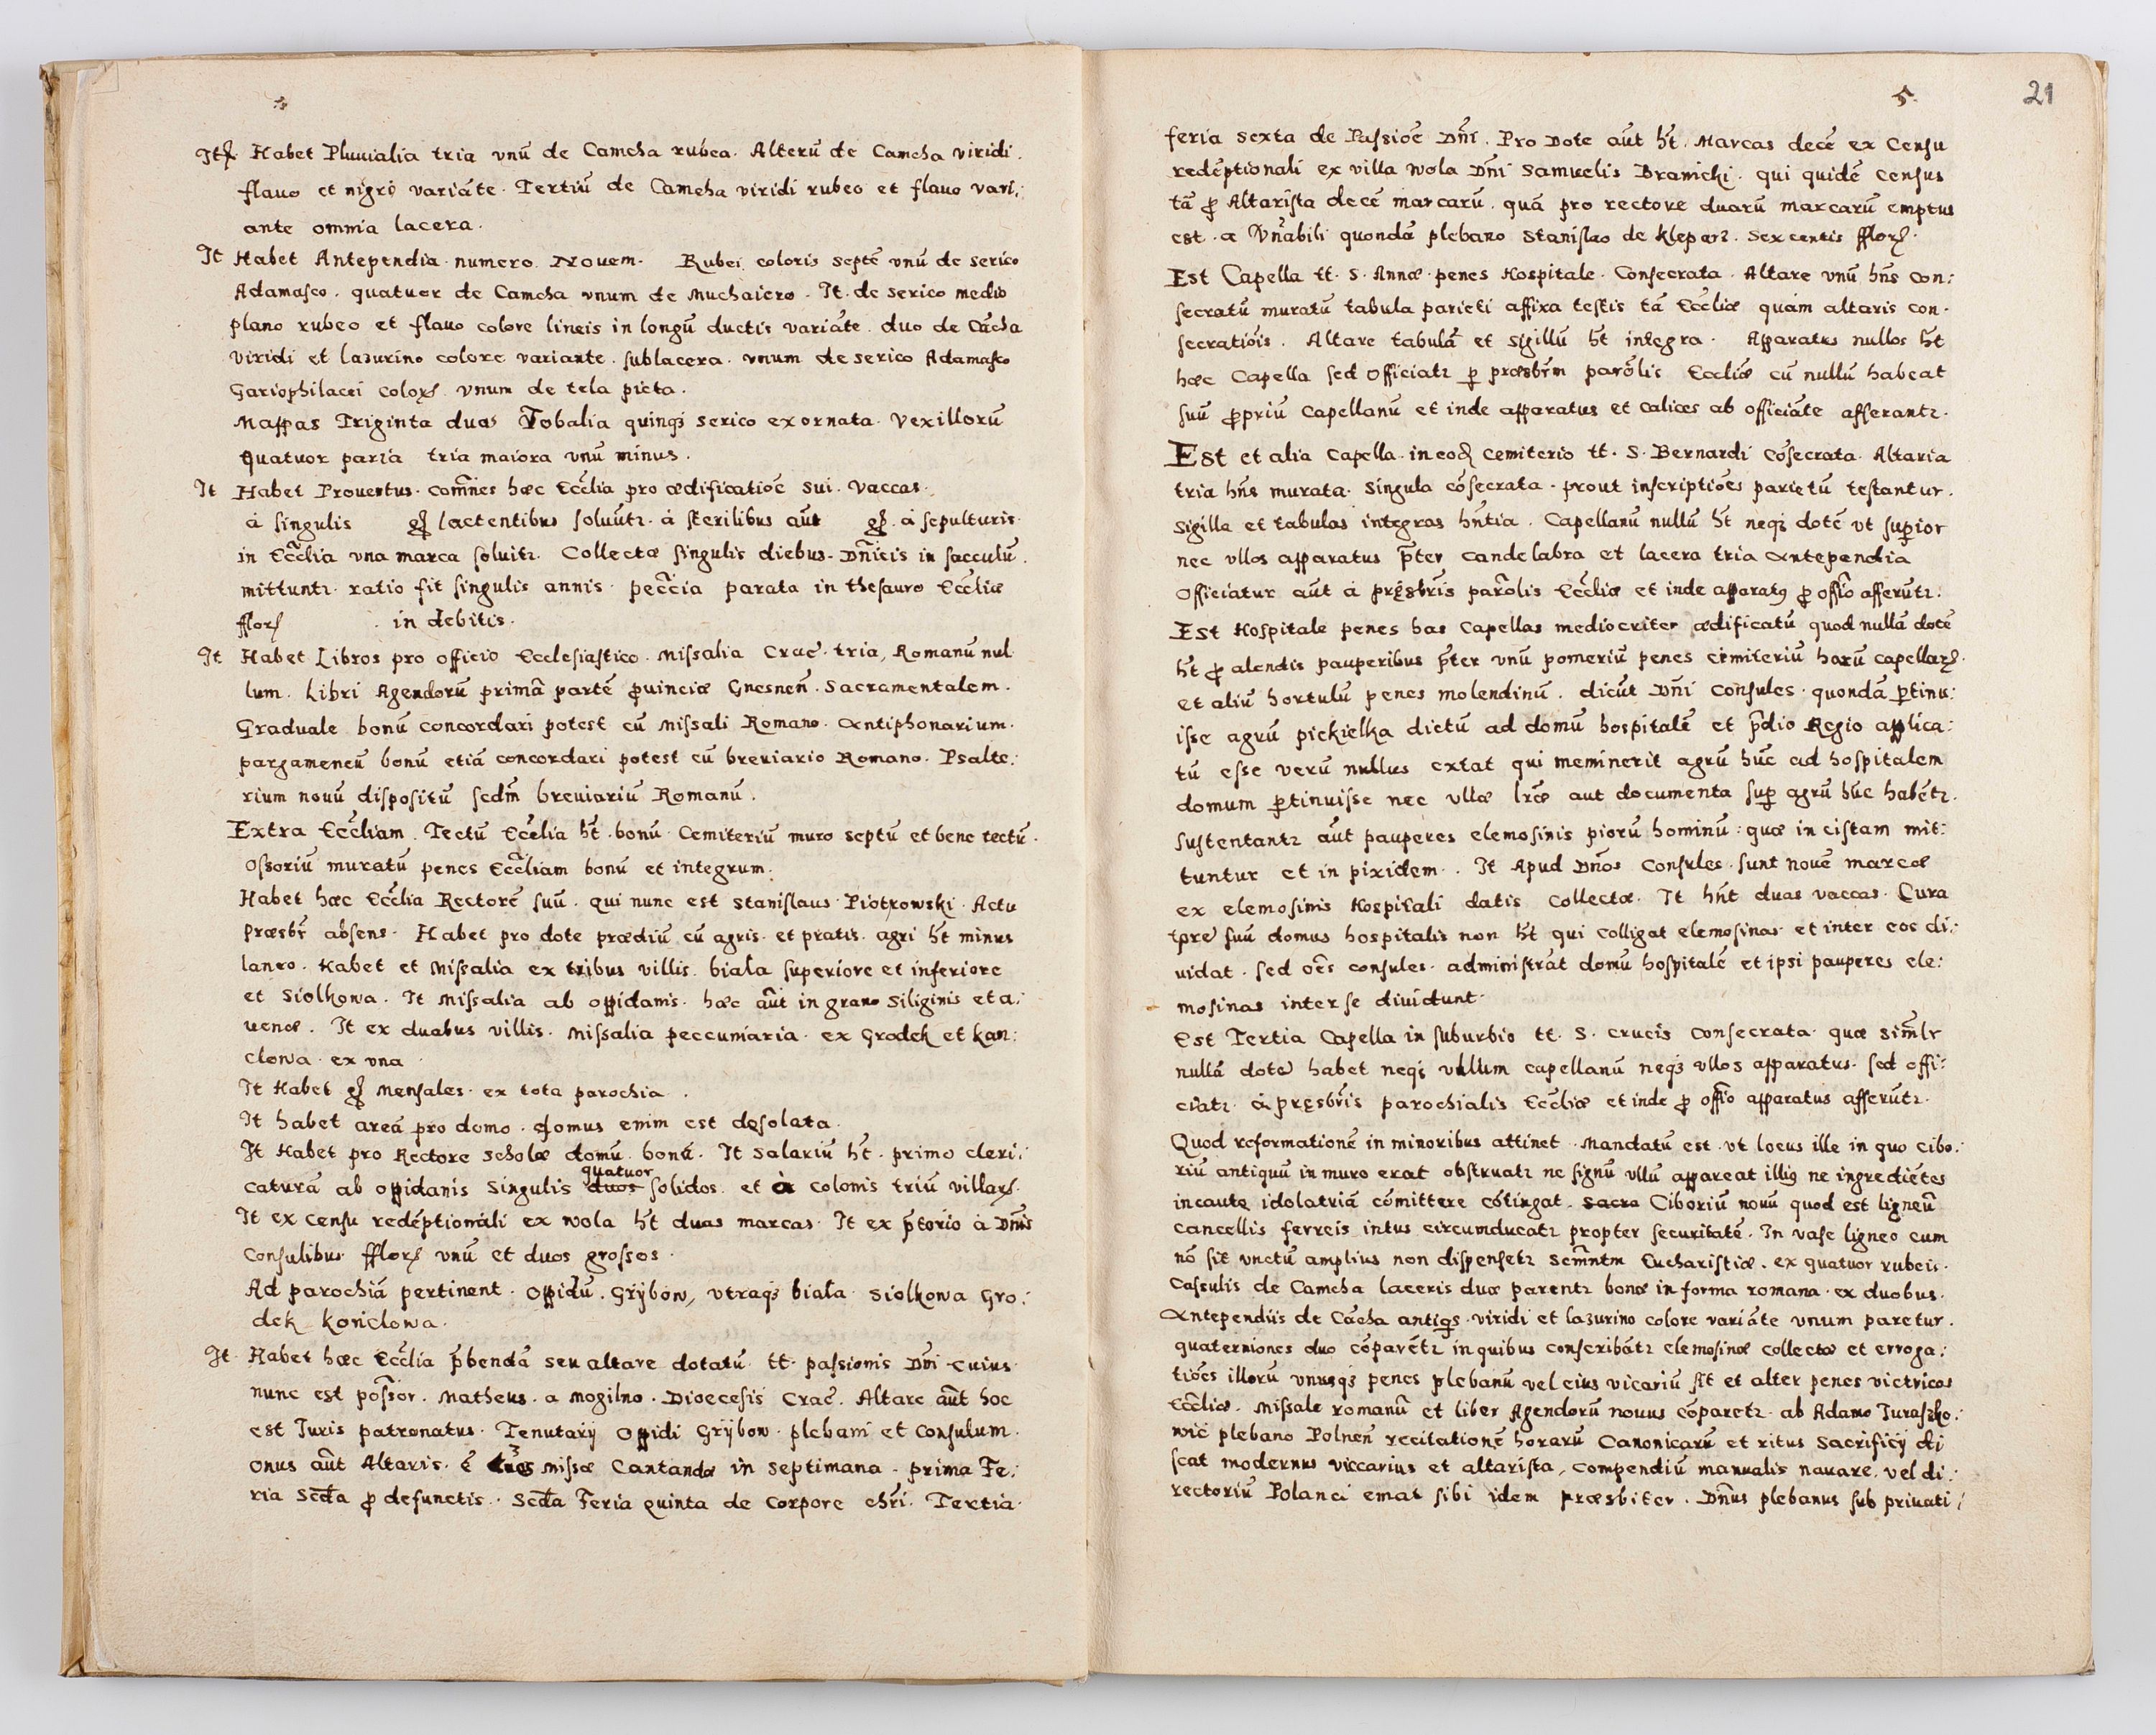 It Habet Pluuialia tria vnū de Camcha rubea. Alterū de Camcha viridi.
flauo et nigro variāte. Tertiū de Camcha viridi rubeo et flauo vari:
ante omnia lacera.
It Habet Antependia numero Nouem. Rubei coloris septē vnū de serico
Adamasco. quatuor de Camcha vnum de Muchaiero. It. de serico medio
plano rubeo et flauo colore lineis in longū ductis variāte. duo de Cācha
viridi et lazurino colore variante. sublacera. vnum de serico Adamasco
Gariophilacei color. vnum de tela picta.
Mappas Triginta duas Tobalia quinqȝ serico exornata. Vexillorū
quatuor paria tria maiora vnū minus.
It Habet Prouentus. com̄nes hæc Eccl̄ia pro ædificatioē sui. Vaccas.
à singulis gr lactentibus soluūtr. à sterilibus aūt gr. à sepulturis
in Eccl̄ia vna marca soluitr. Collectæ singulis diebus Dn̄icis in sacculū.
mittuntr. ratio fit singulis annis. pecc̄ia parata in thesauro Eccl̄iæ
fflor. in debitis.
It Habet Libros pro officio Ecclesiastico. Missalia Crac̄. tria, Romanū nul
lum. Libri Agendorū primā partē ꝓuinciæ Gnesneñ. Sacramentalem.
Graduale bonū concordari potest cū Missali Romano. Antiphonarium.
pargameneū bonū etiā concordari potest cū breuiario Romano. Psalte:
rium nouū dispositū secdm̄ breuiariū Romanū.
Extra Eccl̄iam. Tectū Eccl̄ia ht̄. bonū. Cemiteriū muro septū et bene tectū.
Ossoriū muratū penes Eccl̄iam bonū et integrum.
Habet hæc Eccl̄ia Rectorē suū. qui nunc est Stanislaus Piotrowski. Actu
præsbr̄ absens. Habet pro dote prædiū cū agris. et pratis. agri ht̄ minus
laneo. Habet et Missalia ex tribus villis. biała superiore et inferiore
et Siolkowa. It Missalia ab oppidanis. hæc aūt in grano Siliginis et a:
uenæ. It ex duabus villis. Missalia peccuniaria. ex Grodek et Kan:
clowa. ex vna.
It Habet gr Mensales. ex tota parochia.
It habet areā pro domo. domus enim est desolata.
It Habet pro Rectore scholæ domū. bonā. It Salariū ht̄. primo cleri:
quatuor
caturā ab oppidanis Singulis duos solidos. et à colonis triū villar.
It ex censu redēptionali ex wola ht̄ duas marcas. It ex p̄torio à Dn̄is
Consulibus fflor vnū et duos grossos.
Ad parochiā pertinent. Oppidū. Grÿbow, vtraqȝ biała. Siolkowa Gro:
dek Konclowa.
It Habet hæc Eccl̄ia p̄bendā seu altare dotatū. tt. passionis Dn̄i cuius
nunc est poss̄or. Matheus. a Mogilno. Dioecesis Crac̄. Altare aūt hoc
est Iuris patronatus. Tenutarÿ Oppidi Grÿbow. plebani et Consulum.
onus aūt Altaris. ē tres missæ Cantandæ in septimana. prima Fe:
ria Scd̄a ꝓ defunctis. Scd̄a Feria quinta de Corpore chr̄i. Tertia
5.
21
feria sexta de Passioē Dn̄i. Pro Dote aūt ht̄. Marcas decē ex Censu
redēptionali ex villa wola Dn̄i Samuelis Branicki. qui quidē census
tā ꝓ Altarista decē marcarū. quā pro rectore duarū marcarū emptus
est. a Vn̄abili quondā plebano Stanislao de Klepar. Sexcentis fflor.
Est Capella tt. S. Annæ. penes Hospitale. Consecrata. Altare vnū hn̄s con:
secratū muratū tabula parieti affixa testis tā Eccl̄iæ quàm altaris con.
secratiōis. Altare tabulā et sigillū ht̄ integra. Apparatus nullos ht̄
hæc Capella sed Officiatr p præsbr̄m parōlis Eccl̄iæ cū nullū habeat
suū ꝓpriū Capellanū et inde apparatus et calices ab officiāte afferantr.
Est et alia Capella in eod Cemiterio tt. S. Bernardi cōsecrata. Altaria
tria hn̄s murata. Singula cōsecrata. prout inscriptiōes parietū testantur.
Sigilla et tabulas integras hn̄tia. Capellanū nullū ht̄ neqȝ dotē vt supior
nec vllos apparatus p̄ter candelabra et lacera tria antependia
Officiatur aūt à pręsbr̄is parōlis Eccl̄iæ et inde apparatꝰ ꝓ offīo afferūtr.
Est Hospitale penes has Capellas mediocriter ædificatū quod nullā dotē
ht̄ ꝓ alendis pauperibus p̄ter vnū pomeriū penes cimiteriū harū capellar.
et aliū hortulū penes molendinū. dicūt Dn̄i Consules. quondā ptinu:
isse agrū piekielka dictū ad domū hospitalē et p̄dio Regio applica:
tū esse verū nullus extat qui meminerit agrū hūc ad hospitalem
domum ptinuisse nec vllæ lr̄æ aut documenta sup agrū hūc habētr.
sustentantr aūt pauperes elemosinis piorū hominū: quæ in cistam mit:
tuntur et in pixidem. It Apud Dn̄os Consules. sunt nouē marcæ
ex elemosinis Hospitali datis Collectæ. It hn̄t duas vaccas. Cura
tore suū domus hospitalis non ht̄ qui colligat elemosinas et inter eos di:
uidat. sed oēs consules. administrāt domū hospitalē et ipsi pauperes ele:
mosinas inter se diuidunt.
Est Tertia Capella in suburbio tt. S. Crucis Consecrata. quæ Siml̄r
nullā dotē habet neqȝ vullum capellanū neqȝ vllos apparatus. sed offi:
ciatr. à pręsbr̄is parochialis Eccl̄iæ et inde ꝓ offīo apparatus afferūtr.
Quod reformationē in minoribus attinet. Mandatū est. vt locus ille in quo cibo:
riū antiquū in muro erat obstruatr ne signū vllū appareat illiꝰ ne ingrediētes
incautę idolatriā cōmittere cōtingat. Sacra Ciboriū nouū quod est ligneū
cancellis ferreis intus circumducatr propter securitatē. In vase ligneo cum
nō sit vnctū amplius non dispensetr Scm̄ntm Eucharistiæ. ex quatuor rubeis.
Cassulis de Camcha laceris duæ parentr bonæ in forma romana. ex duobus.
Antependiis de Cācha antiqs. viridi et lazurino colore variāte vnum paretur.
quaterniones duo cōparētr in quibus conscribātr elemosinæ collectæ et erroga:
tiōes illorū vnusqȝ penes plebanū vel eius vicariū sit et alter penes victricos
Eccl̄iæ. Missale romanū et liber Agendorū nouus cōparetr. ab Adamo Iuraszko:
wic plebano Polneñ recitationē horarū Canonicarū et ritus Sacrificÿ di
scat modernus viccarius et altarista, Compendiū manualis nauare. vel di:
rectoriū Polanci emat sibi idem præsbiter. Dn̄us plebanus sub priuati: